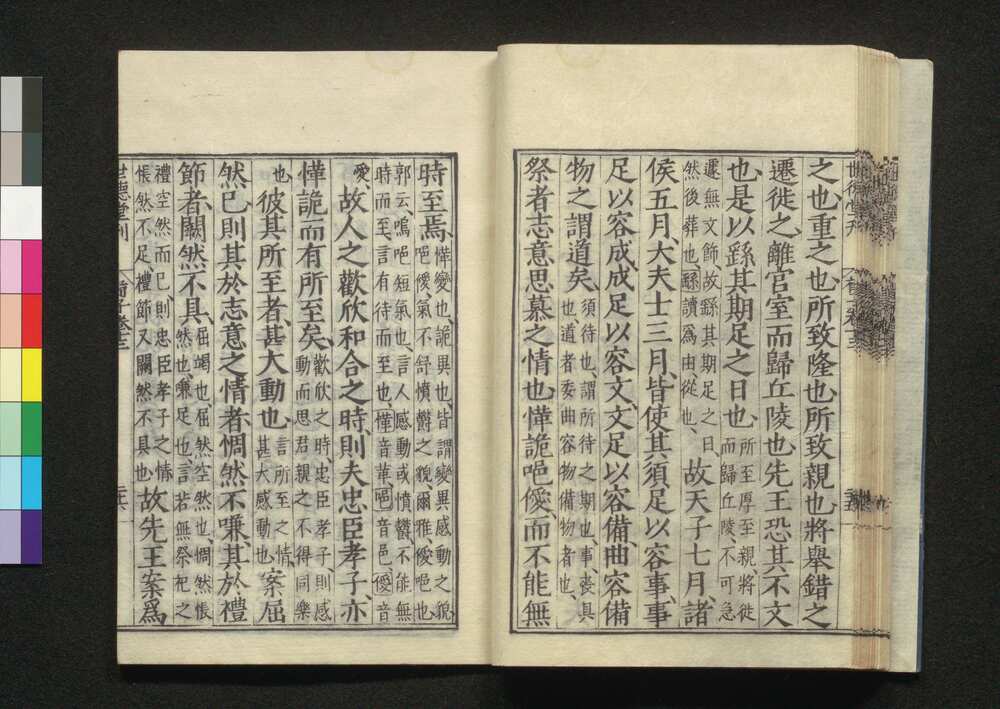 之也重之也所致隆也所致親也將舉錯之
遷徙之離宮室而歸丘陵也先王恐其不文
也是以繇其期足之日也所至厚至親將徙而歸丘陵不可急
遽無文飾故繇其期足之日然後葬也繇讀爲由從也故天子七月諸
侯五月大夫士三月皆使其須足以容事事
足以容成成足以容文文足以容備曲容備
物之謂道矣須待也謂所待之期也事喪具也道者委曲容物備物者也
祭者志意思慕之情也愅詭唈僾而不能無
時至焉愅變也詭異也皆謂變異感動之貌唈僾氣不舒憤鬱之貌爾雅僾唈也
郭云嗚唈短氣也言人感動或憤鬱不能無時而至言有待而至也愅音革唈音邑僾音
愛故人之歡欣和合之時則夫忠臣孝子亦
愅詭而有所至矣歡欣之時忠臣孝子則感動而思君親之不得同樂
也彼其所至者甚大動也言所至之情甚大感動也案屈
然已則其於志意之情者惆然不嗛其於禮
節者闕然不具屈竭也屈然空然也惆然悵然也嗛足也言若無祭祀之
禮空然而已則忠臣孝子之情悵然不足禮節又闕然不具也故先王案爲
世德堂刊